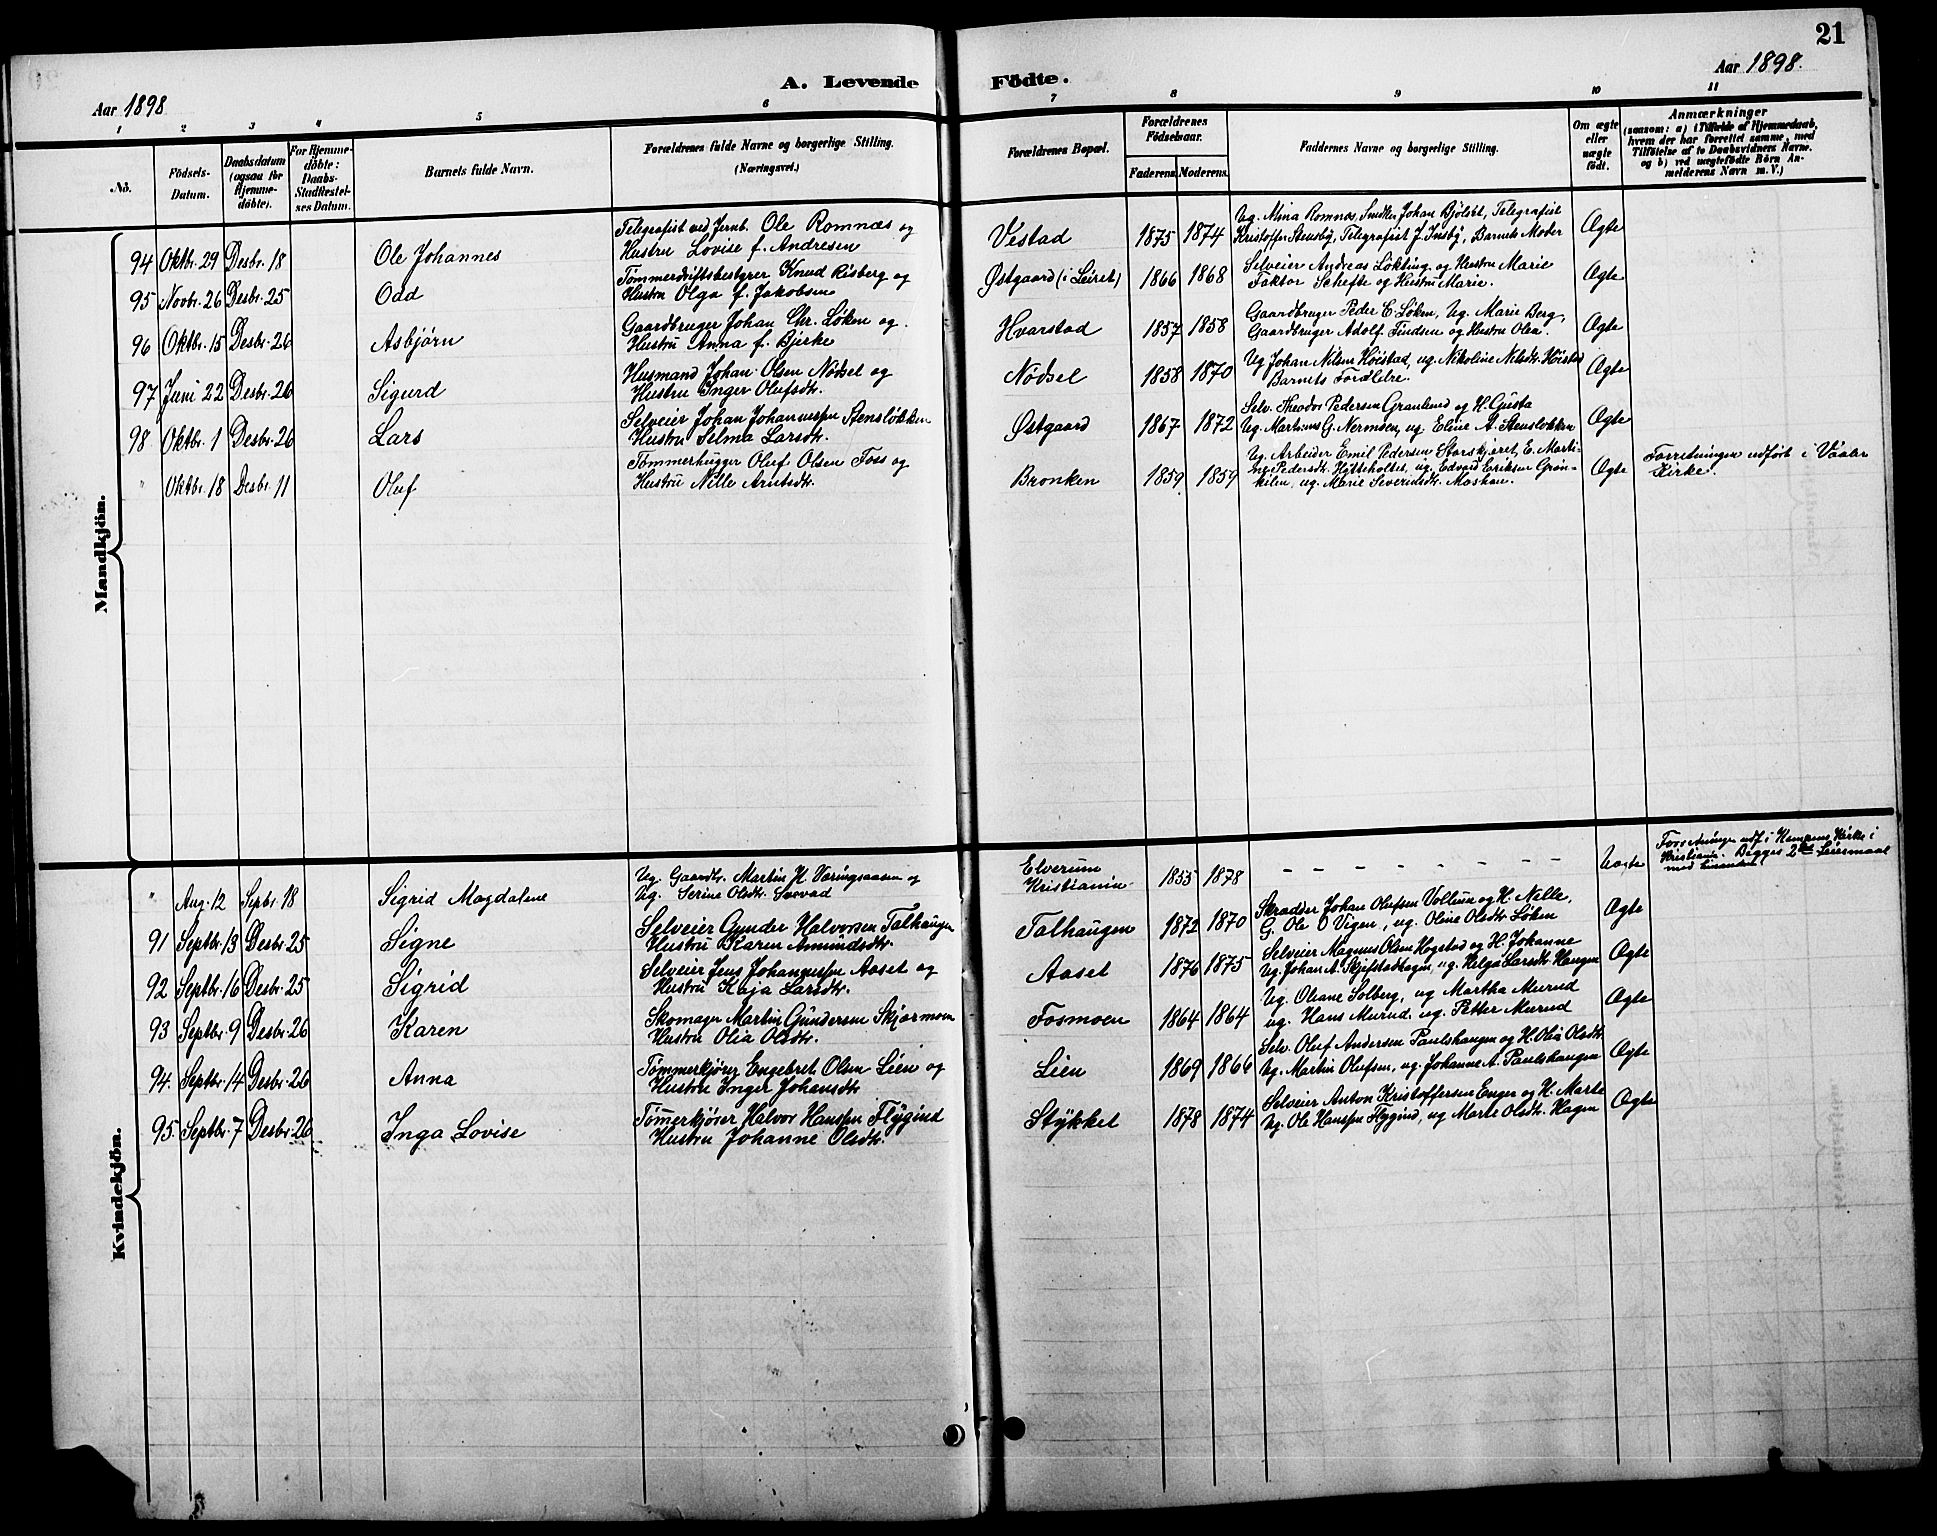 21
A. Levende Födte.
Aar 1898
Aar 1898.
1 2 3 4 5 6 7 8 9 10 11
No.
Födsels-Datum.
Daabsdatum (ogsaa for Hjemme-döbte).
For Hjemme-döbte: Daabs-Stadfæstel-ses Datum.
Barnets fulde Navn.
Forældrenes fulde Navne og borgerlige Stilling.
(Næringsvei.)
Forældrenes Bopæl.
Forældrenes Födselsaar.
Faderens. Moderens.
Faddernes Navne og borgerlige Stilling.
Om ægte eller uægte födt.
Anmærkninger
(saasom: a) i Tilfælde af Hjemmedaab,
hvem der har forrettet samme, med
Tilföielse af to Daabsvidners Navne.
og b) ved uægtefödte Börn An-
melderens Navn m. V.)
Mandkjön.
94 Oktbr. 29 Desbr. 18 Ole Johannes
Telegrafist ved Jernb. Ole Romnæs og
Hustru Lovise f. Andresen
Vestad 1875 1874
Ug. Mina Romnæs, Snedker Johan Bjölset, Telegrafist
Kristoffer Stensby, Telegrafist J. Insby, Barnets Moder
Ægte
95 Novbr. 26 Desbr. 25 Odd
Tømmerdriftsbestyrer Knud Risberg og
Hustru Olga f. Jakobsen
Østgaard (i Leiret) 1866 1868
Selveier Andreas Løkting og Hustru Marie
Faktor Schefte og Hustru Marie.
Ægte
96 Oktbr. 15 Desbr. 26 Asbjørn
Gaardbruger Johan Chr. Løken og
Hustru Anna f. Bjerke
Hvarstad 1857 1858
Gaardbruger Peder C. Løken, Ug. Marie Berg,
Gaardbruger Adolf Findsen og Hustru Olea.
Ægte
97 Juni 22 Desbr. 26 Sigurd
Husmand Johan Olsen Nødset og
Hustru Inger Olufsdtr.
Nödsel 1858 1870
Ug Johan Nilsen Høistad, ug. Nikoline Nilsdtr Høistad
Barnets Forældre.
Ægte
98 Oktbr. 1 Desbr. 26 Lars
Selveier Johan Johannessen Stensløkken
Hustru Selma Larsdtr.
Østgaard 1867 1872
Selv. Theodor Pedersen Granlund og H. Gusta
Ug. Martinus G. Nerondsen, ug. Eline A. Stensløkken
Ægte
" Oktbr. 18 Desbr. 11 Oluf
Tømmerhugger Oluf Olsen Foss og
Hustru Nille Arntsdtr.
Bronken 1859 1859
Ug. Arbeider Emil Pedersen Storskjæret, E. Marti-
ne Pedersdtr. Hytteholtet, ug. Edvard Eriksen Grøn-
kilen, ug. Marie Severinsdtr. Moshau.
Ægte
Forretningen udført i Vaaler
Kirke.
Kvindekjön.
" Aug. 12 Septbr. 18 Sigrid Magdalene
Ug. Gaardbr. Martin H. Væringsaasen og
Ug. Serine Olsdtr.
Elverum
Kristiania 1855 1878
– – – – – – – –
Uægte
Forretningen udf. i Kampens Kirke i
Kristiania. Begges 2det Leiermaal
med hinanden
91 Septbr. 13 Desbr. 25 Signe
Selveier Gunder Halvorsen Talhaugen
Hustru Karen Amundsdtr.
Talhaugen 1872 1870
Skrædder Johan Olufsen Vollum og H. Nelle,
G. Ole O Vigen, ug. Oline Olsdtr. Løken
Ægte
92 Septbr. 16 Desbr. 25 Sigrid
Selveier Jens Johannessen Aaset og
Hustru Kaja Larsdtr.
Aaset 1876 1875
Selveier Magnus Olsen Hogstad og H. Johanne
Ug. Johan A. Skjefstadhagen, ug. Helga Larsdtr. Haugen
Ægte
93 Septbr. 9 Desbr. 26 Karen
Skomager Martin Gundersen Skjærmoen
Hustru Olia Olsdtr.
Fosmoen 1864 1864
Ug. Oliane Solberg, ug Martha Murud
ug. Hans Murud, ug. Petter Murud
Ægte
94 Septbr. 14 Desbr. 26 Anna
Tømmerkjører Engebret Olsen Lien og
Hustru Inger Johansdtr
Lien 1869 1866
Selv. Oluf Andersen Paulshaugen og H. Olia Olsdtr.
Ug. Martin Olufsen, ug. Johanne A. Paulshaugen
Ægte
95 Septbr. 7 Desbr. 26 Inga Lovise
Tømmerkjører Halvor Hanssen Flygind
Hustru Johanne Olsdtr.
Stykket 1878 1874
Selveier Anton Kristoffersen Enger og H. Marte
Ug. Ole Hanssen Flygind, ug Marte Olsdtr. Hagen
Ægte